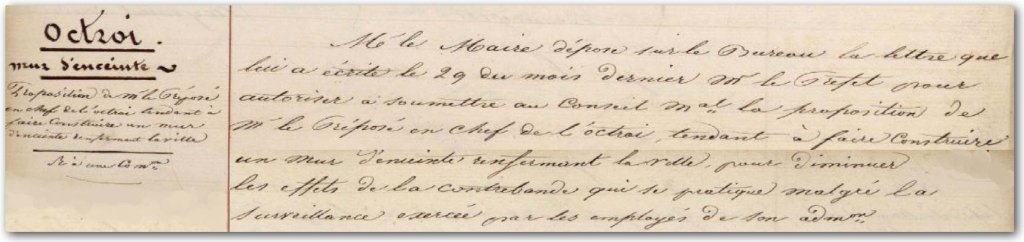 Octroi.
mur d'enceinte
Proposition de Mr le Préposé
en chef de l'octroi tendant à
faire construire un mur
d'enceinte renfermant la ville
Ré à une Comon
Mr le Maire dépose sur le Bureau la lettre que
lui a écrite le 29 du mois dernier Mr le Préfet pour
autoriser à soumettre au Conseil mal la proposition de
Mr le Préposé en chef de l'octroi, tendant à faire construire
un mur d'enceinte renfermant la ville, pour diminuer
les effets de la contrebande qui se pratique malgré la
surveillance exercée par les employés de son admon